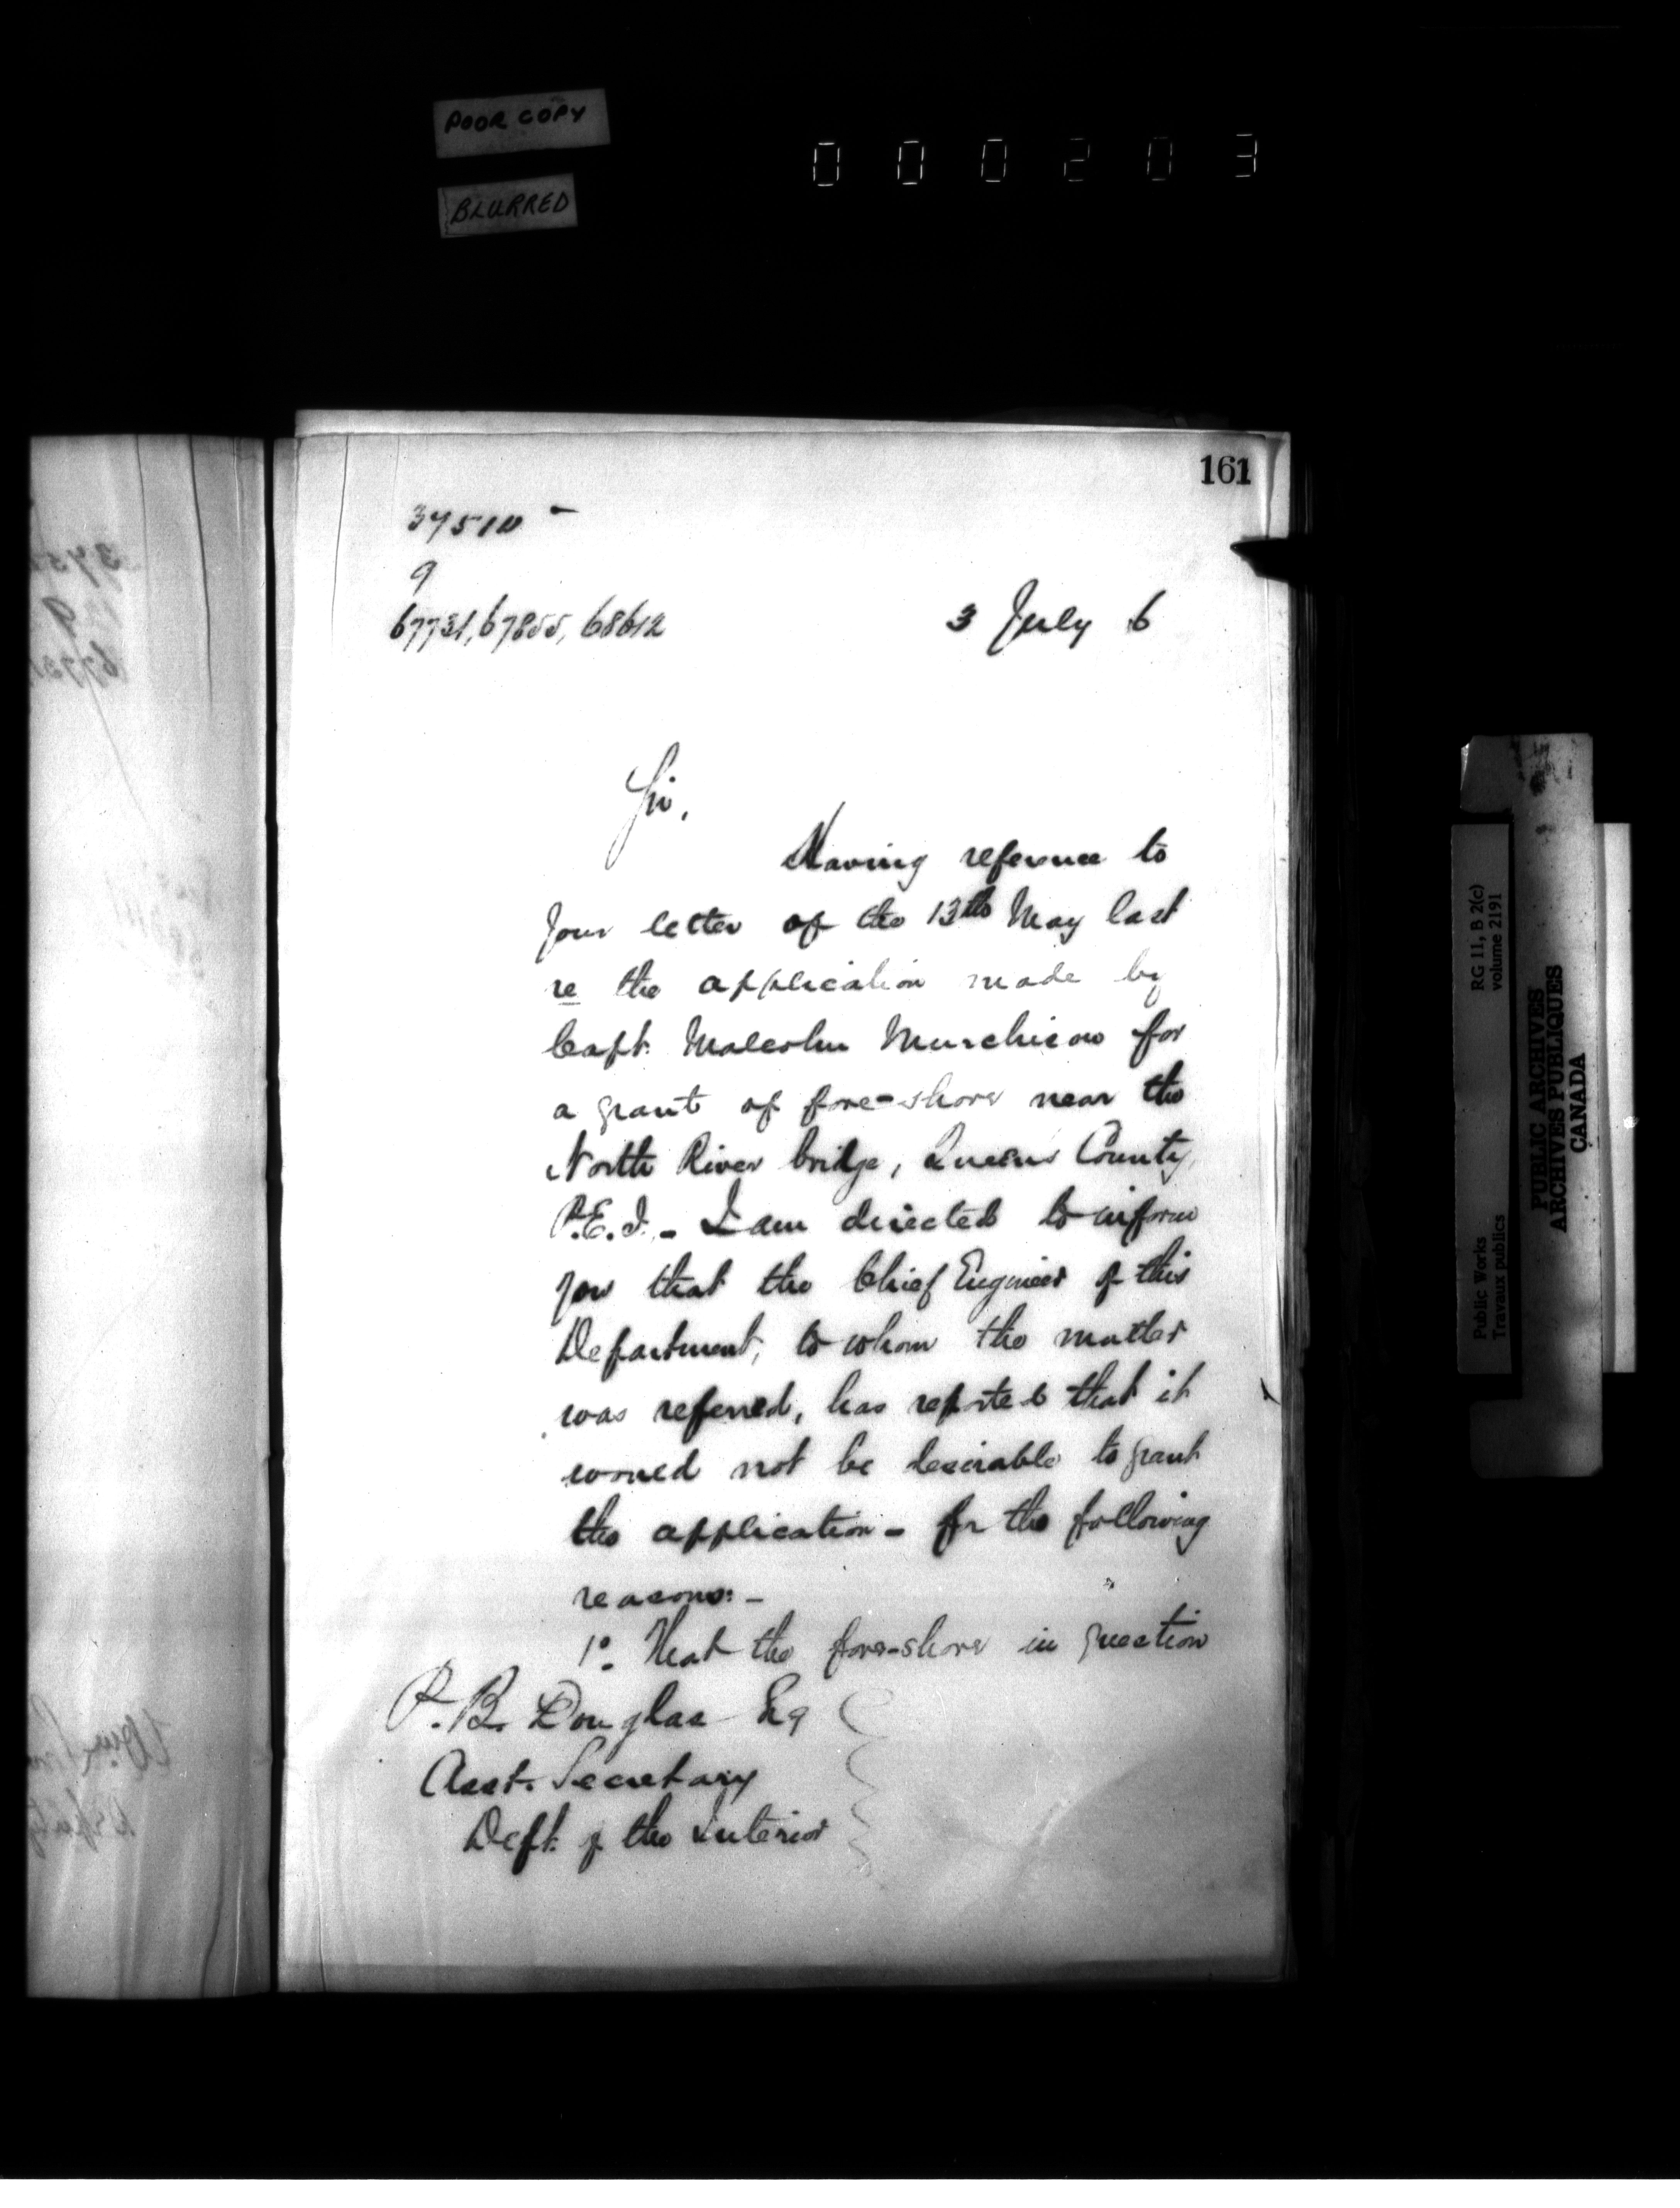 POOR COPY
BLURRED
000203
161
9
67731, 67855, 68612
3 July 6
Sir,
Having reference to
your letter of the 13th May last
re the application made by
Capt. Malcolm Murchison for
a grant of fore-shore near the
North River bridge, Queens County,
P.E.I. - I am directed to inform
you that the Chief Engineer of this
Department, to whom the matter
was referred, has reported that it
would not be desirable to grant
the application - for the following
reasons: -
1º. That the fore-shore in question
P. B. Douglas Esq
Asst. Secretary
Dept. of the Interior
Public Works
Travaux publics
RG 11, B 2(c)
volume 2191
PUBLIC ARCHIVES
ARCHIVES PUBLIQUES
CANADA